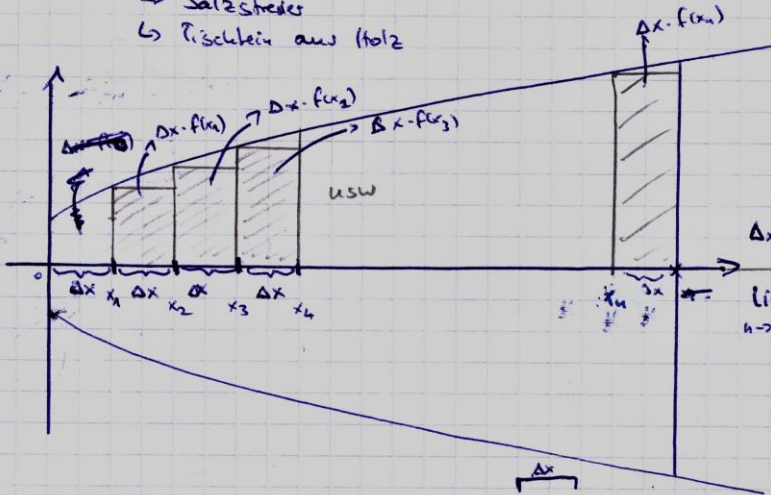 → Salzstreuer
↳ Tischbein aus Holz
Δx·f(x₁)
Δx·f(x₂)
Δx·f(x₃)
Δx·f(xₙ)
usw
0 Δx x₁ Δx x₂ Δx x₃ Δx x₄ xₙ Δx
Δx
li
n→
Δx